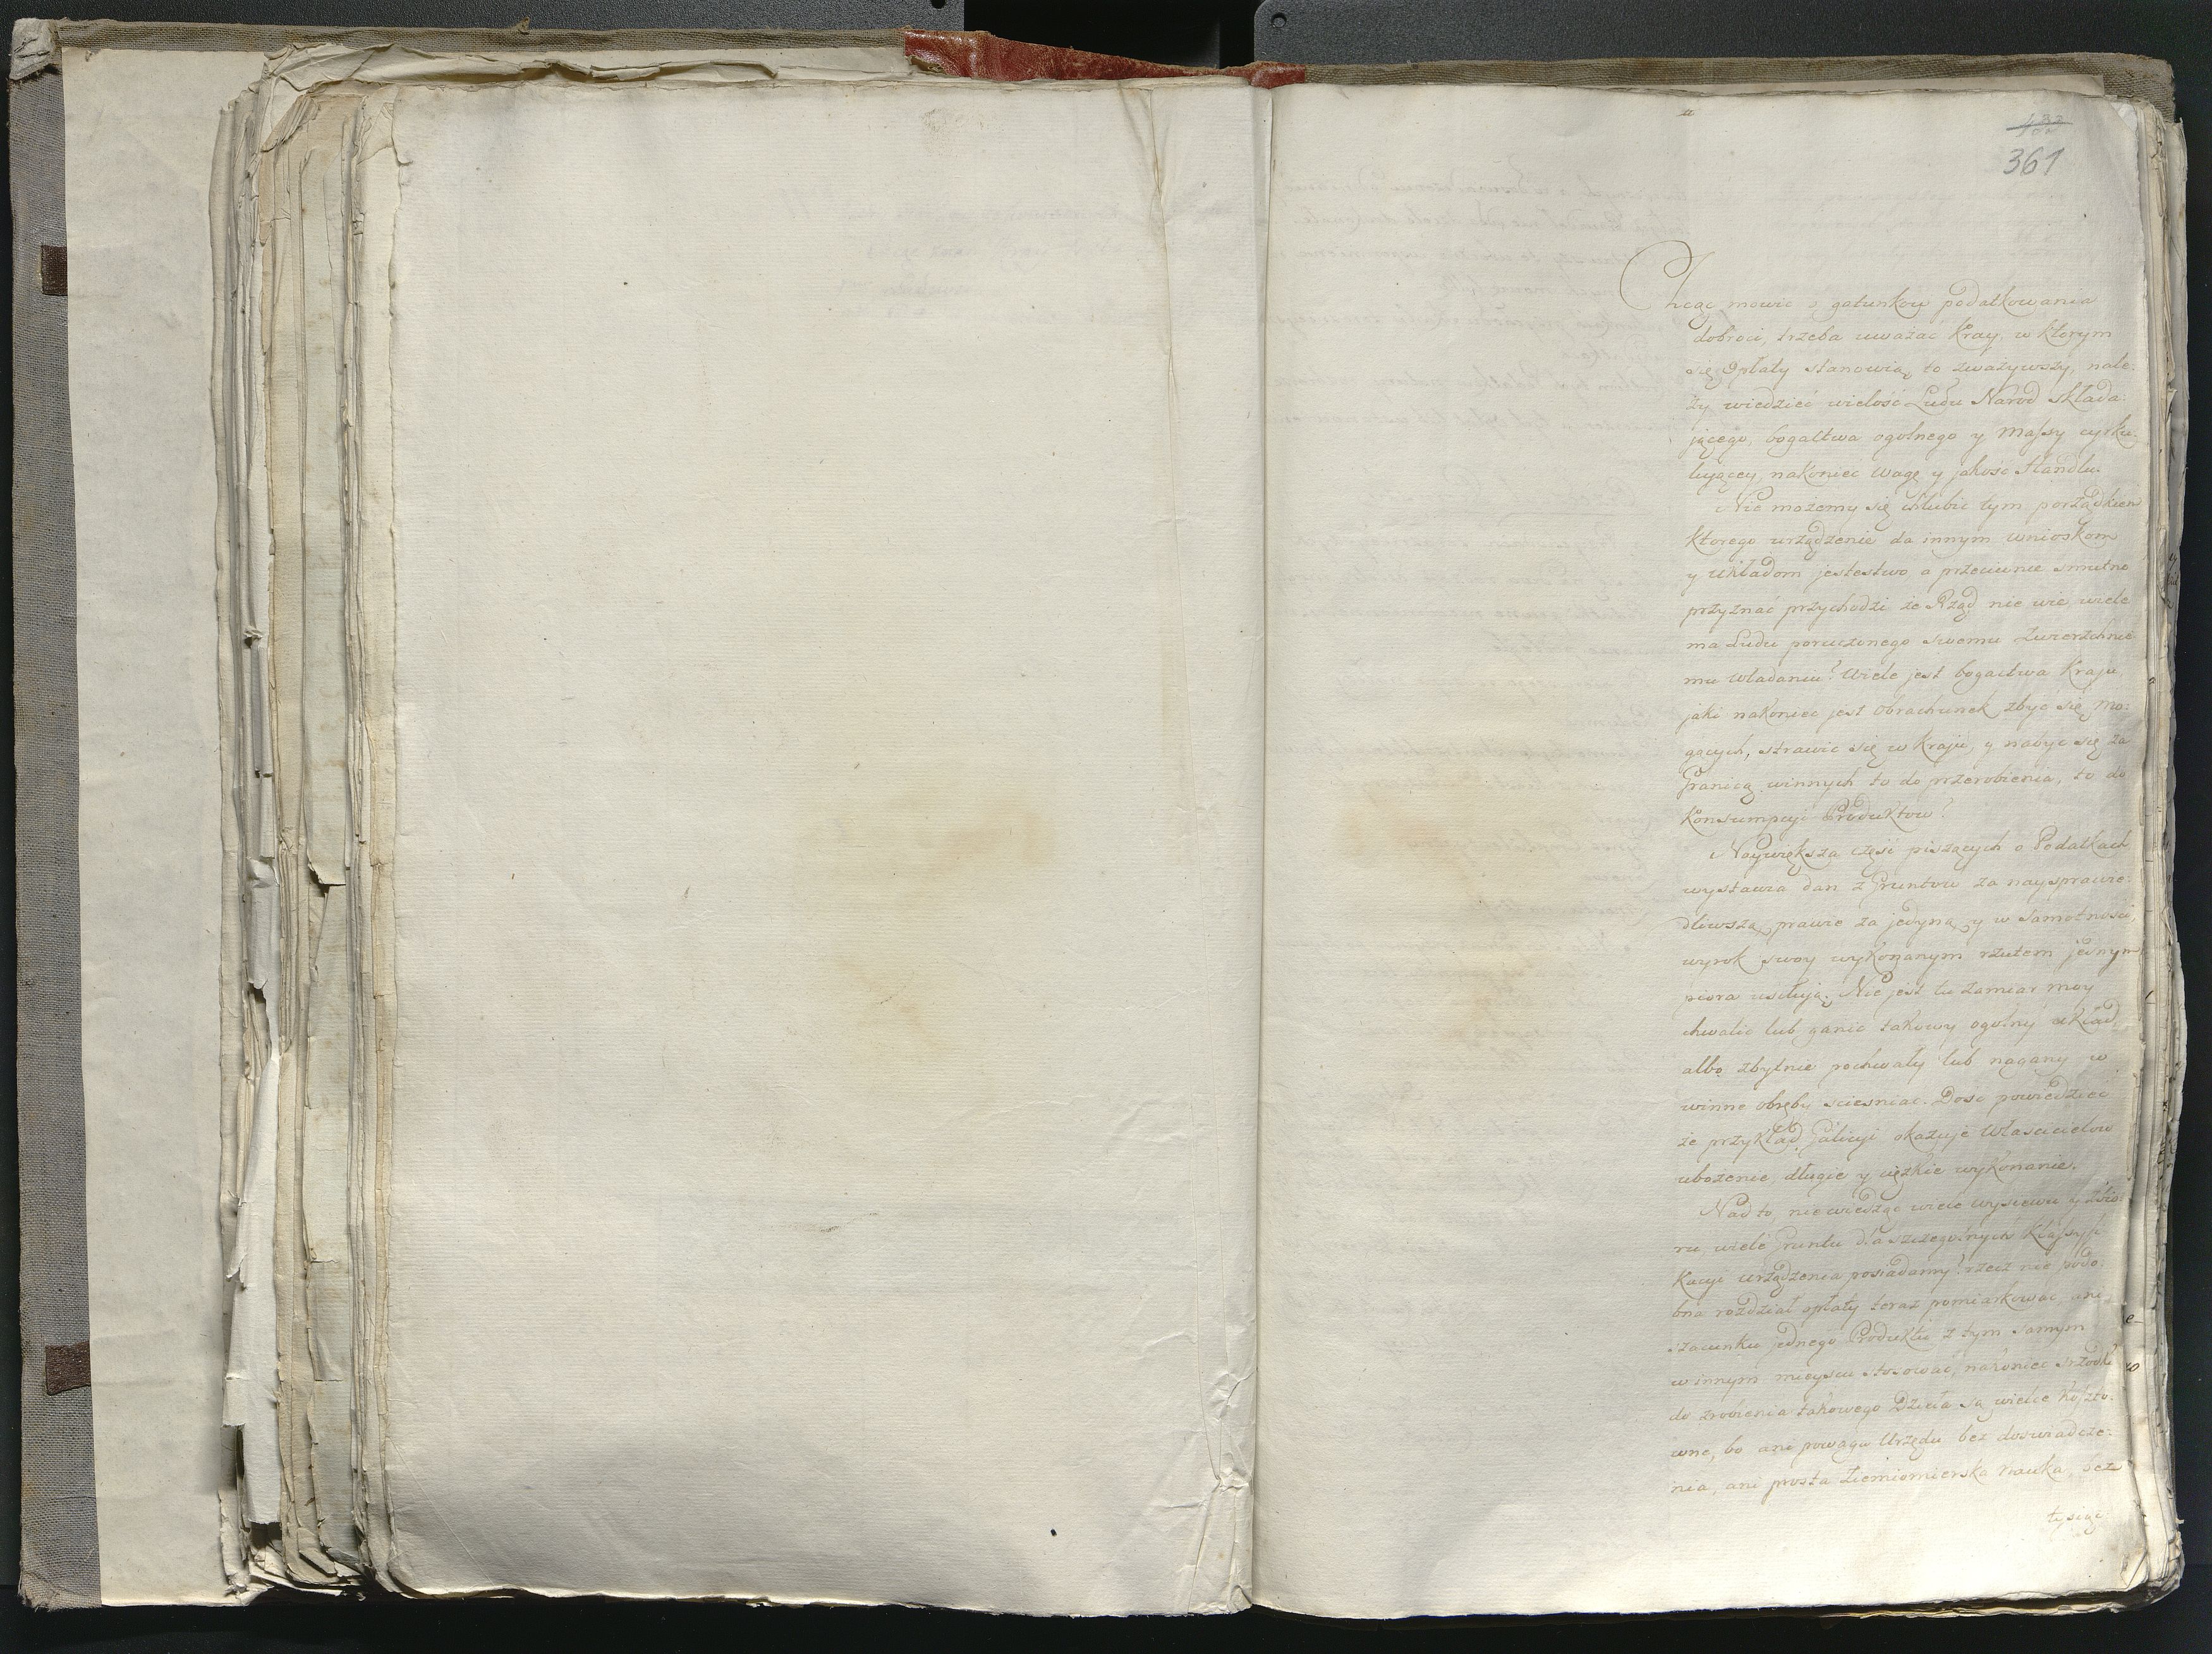 361
Chcąc mowic o gatunkow podatkowania
dobroci, trzeba uważać Kray, w ktorym
się Opłaty stanowią, to zważywszy, nale:
ży wiedzieć wielośc Ludu Narod składa:
jącego, bogactwa ogolnego y Massy cyrku:
lujący, nakoniec Wagę y jakośc Handlu.
Nie możemy się chlubic tym porządkiem
ktorego urządzenie da innym wnioskom
y układom jestestwo a przeciwnie smutno
przyznać przychodzi że Rząd nie wie wiele
ma Ludu poruczonego swemu Zwierzchnie
mu władaniu? Wiele jest bogactwa Kraju,
jaki nakoniec jest Obrachunek zbyc się mo:
gących, strawic się w kraju, y nabyc się za
Granicą winnych to do przerobienia, to do
Konsumpcyi Produktow?
Naywiększa częsc piszących o Podatkach
wystawia dan z Gruntow za naysprawie:
dliwszą, prawie za jedyną, y w samotności,
wyrok swoy wykonanym rzutem jednym
piora usiłują. Nie jest tu zamiar moy
chwalic lub ganic takowy ogolny układ,
albo zbytnie pochwały lub nagany w
winne obręby sciesniac. Dosc powiedziec
że przykład Galicyi okazuje Właścicielow
ubożenie, długie y ciężkie wykonanie.
Nad to, niewiedząc wiele wysiewu y zbio:
ru, wiele Gruntu dla szczegolnych Klassyfi
kacyi urządzenia posiadamy? rzecz nie podo:
bna rozdział opłaty teraz pomiarkowac, ani
szacunku jednego Produktu z tym samym
w innym mieyscu stosować, nakoniec srzodki
do zrobienia takowego Dzieła są wielce koszto:
wne, bo ani powaga Urzędu bez doswiadcze:
nia, ani prosta Ziemiomierska nauka, bez
tysiąc